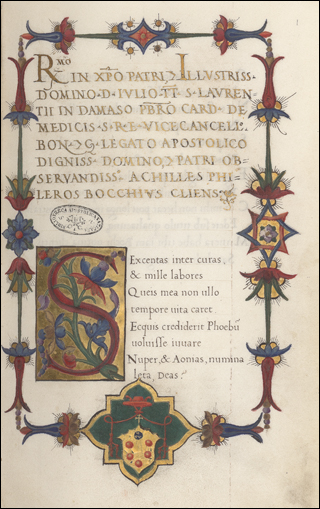 Rmo
IN XPO PATRI, & ILLUSTRISS·
DOMINO·D·IVLIO TT· S·LAVREN-
TII IN DAMASO PBRO CARD·DE
MEDICIS·S·R·E·VICECANCELL·
BON·&C·LEGATO APOSTOLICO
DIGNISS·DOMINO, & PATRI OB-
SERVANDISS· ACHILLES PHI-
LEROS BOCCHIVS CLIENS·
Sexcentas inter curas,
& mille labores
Queis mea non ullo
tempore uita caret
Ecquis crediderit Phoebũ
uoluisse iuuare
Nuper, & Aonias, numina
leta Deas?